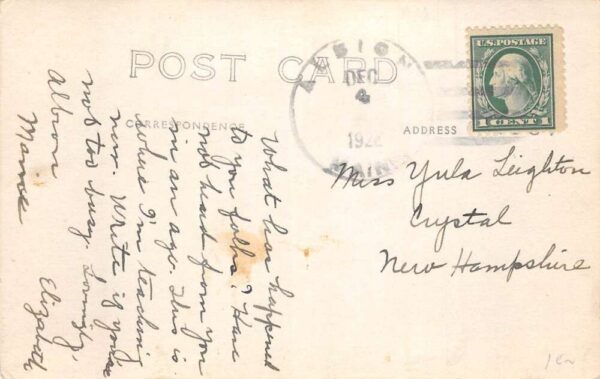 POST CARD
CORRESPONDENCE
ADDRESS
U.S. POSTAGE
1 CENT 1
ALBION
DEC
4
MAINE
What has happened
to you folks? Have
not head from you
in an age. This is
where I'm teaching
now. Write if you're
not too busy. Lovingly,
Albion Elizabeth
Maine
Miss Yula Leighton
Crystal
New Hampshire